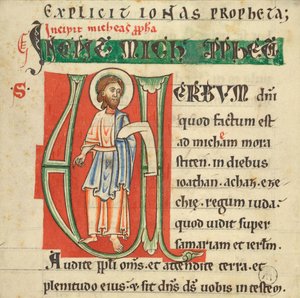 EXPLICIT IONAS PROPHETA;
Incipit micheas ppha
INCIPIT MICH PPHETA
VERBUM dñi
quod factum est
ad micheam mora
sthiten. in diebus
ioathan. achaz. eze
chię. regum iuda.
quod vidit super
samariam et ierlm.
Audite ppli om̃s. et attendite terra. et
plenitudo eius. et sit dñs ds vobis in testem.